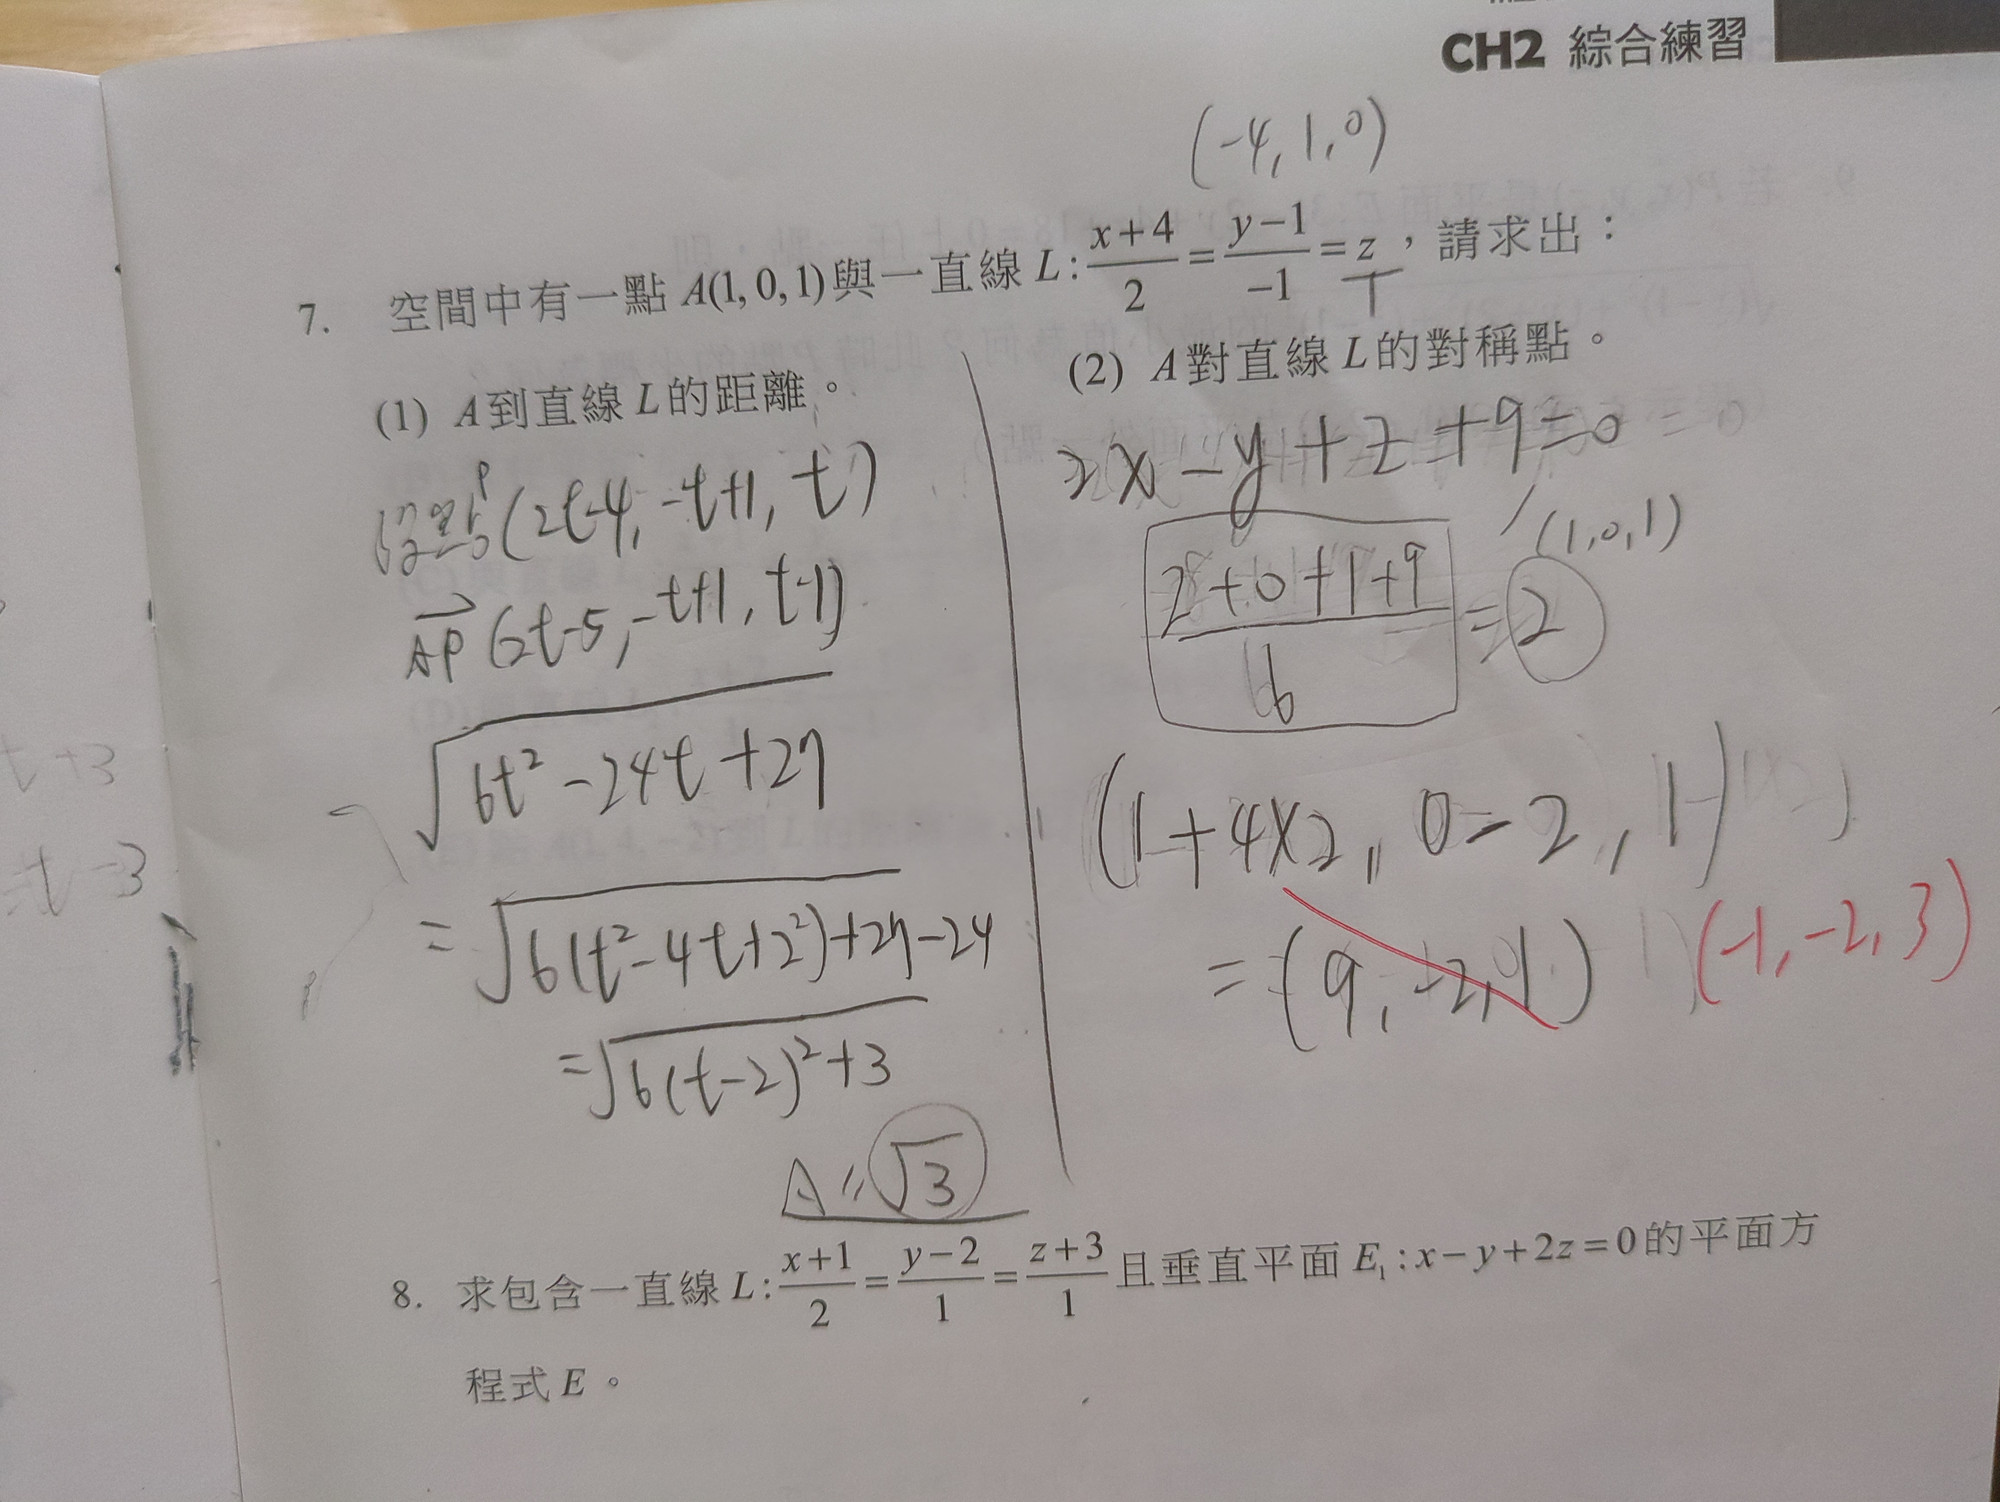 CH2 綜合練習
(-4, 1, 0)
7. 空間中有一點 A(1, 0, 1) 與一直線 L : \frac{x+4}{2} = \frac{y-1}{-1} = z，請求出：
1
(1) A 到直線 L 的距離。
(2) A 對直線 L 的對稱點。
設點P (2t-4, -t+1, t)
\overrightarrow{AP} (2t-5, -t+1, t-1)
\sqrt{6t²-24t+27}
= \sqrt{6(t²-4t+2²)+27-24}
= \sqrt{6(t-2)²+3}
A: \sqrt{3}
2x-y+z+9=0
(1,0,1)
\frac{2+0+1+9}{6} = 2
(1+4×2, 0-2, 1)
= (9, -2, 1)
(-1, -2, 3)
8. 求包含一直線 L : \frac{x+1}{2} = \frac{y-2}{1} = \frac{z+3}{1} 且垂直平面 E₁ : x-y+2z=0 的平面方
程式 E。
t+3
=t-3